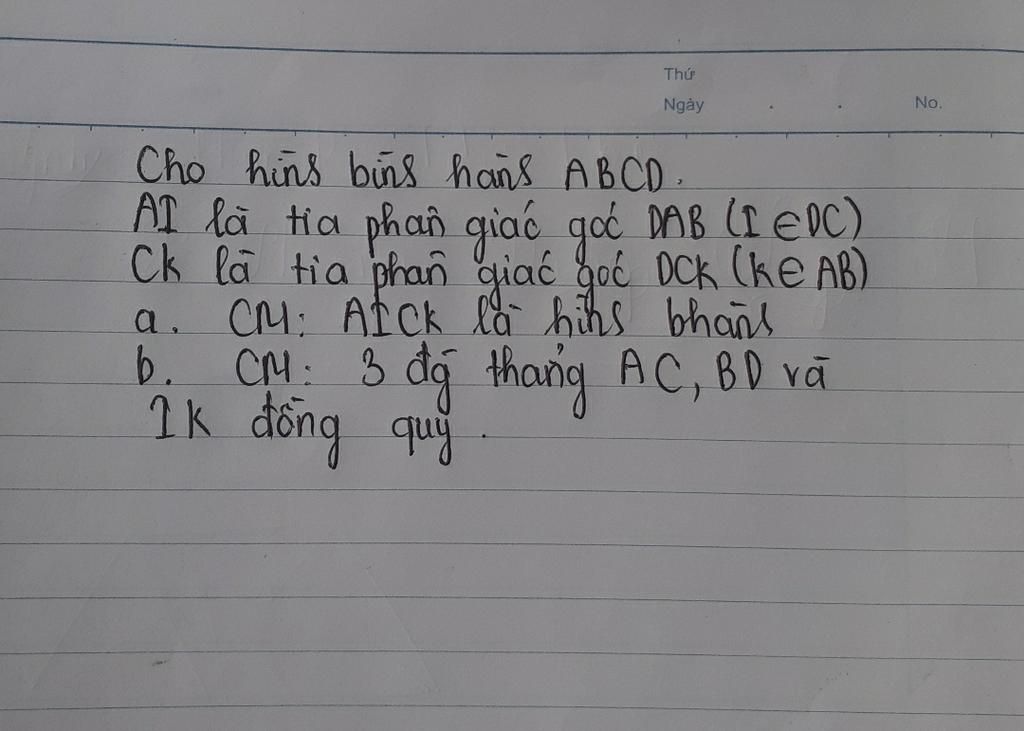 Thứ
Ngày . . No.
Cho hình bình hành ABCD.
AI là tia phân giác góc DAB (I ∈ DC)
Ck là tia phân giác góc DCK (k ∈ AB)
a. CM: AICK là hình bhành
b. CM: 3 đg thẳng AC, BD và
Ik đồng quy.